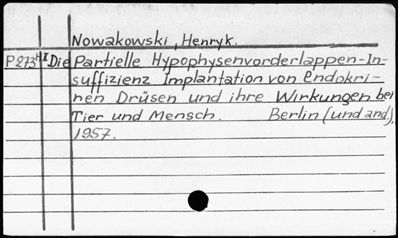 Nowakowski, Henryk.
P273 HI Die Partielle Hypophysenvorderlappen-In-
suffizienz Implantation von Endokri-
nen Drüsen und ihre Wirkungen bei
Tier und Mensch. Berlin (und and.),
1957.